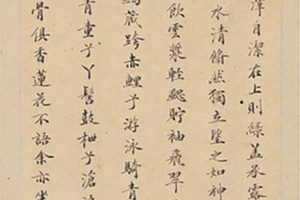 潭月潔在上則綠蓋承露
水清脩然獨立望之如神
飲雲漿輕颸貯袖飛翠
藏跨赤鯉子游泳騎青
青童子丫髻鼓枻子滄
骨俱香蓮花不語余亦坐